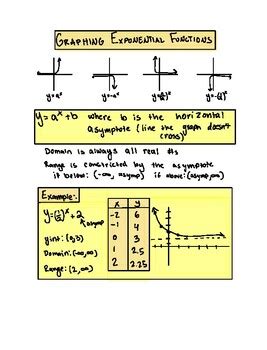 GRAPHING EXPONENTIAL FUNCTIONS
y=a^x y=-a^x y=(1/a)^x y=-(1/a)^x
y=a^x+b where b is the horizontal
asymptote (line the graph doesn't
cross)
Domain is always all real #s
Range is constricted by the asymptote
if below: (-∞, asymp) if above: (asymp, ∞)
Example:
y=(1/2)^x+2
asymp
yint: (0,3)
Domain: (-∞,∞)
Range: (2,∞)
x y
-2 6
-1 4
0 3
1 2.5
2 2.25